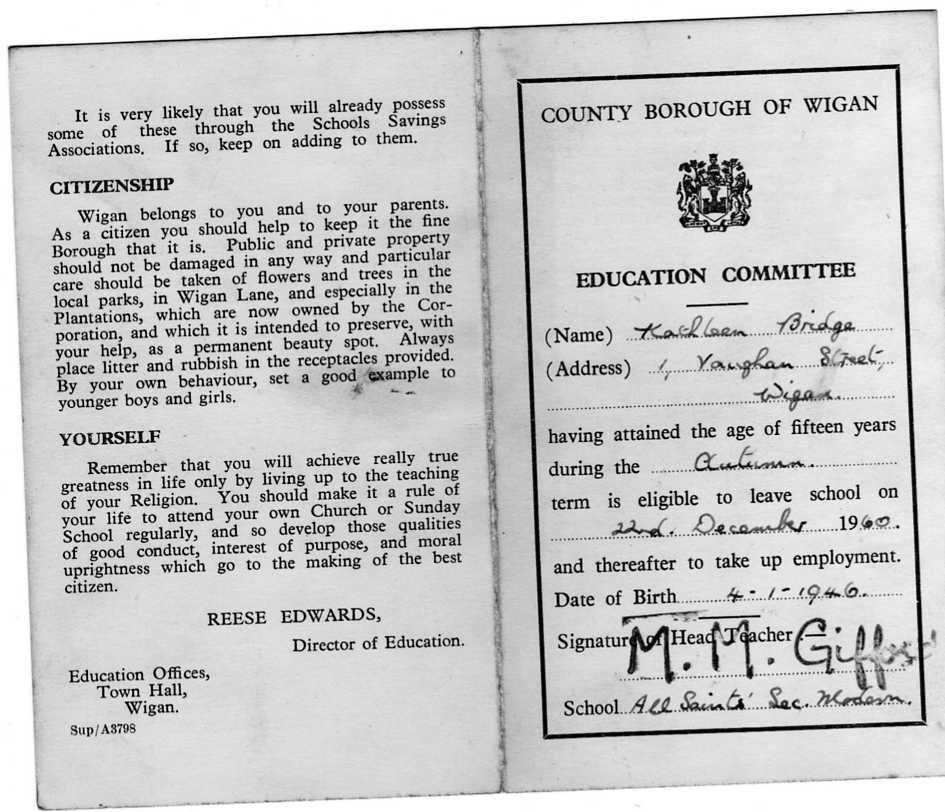 It is very likely that you will already possess
some of these through the Schools Savings
Associations. If so, keep on adding to them.
CITIZENSHIP
Wigan belongs to you and to your parents.
As a citizen you should help to keep it the fine
Borough that it is. Public and private property
should not be damaged in any way and particular
care should be taken of flowers and trees in the
local parks, in Wigan Lane, and especially in the
Plantations, which are now owned by the Cor-
poration, and which it is intended to preserve, with
your help, as a permanent beauty spot. Always
place litter and rubbish in the receptacles provided.
By your own behaviour, set a good example to
younger boys and girls.
YOURSELF
Remember that you will achieve really true
greatness in life only by living up to the teaching
of your Religion. You should make it a rule of
your life to attend your own Church or Sunday
School regularly, and so develop those qualities
of good conduct, interest of purpose, and moral
uprightness which go to the making of the best
citizen.
REESE EDWARDS,
Director of Education.
Education Offices,
Town Hall,
Wigan.
Sup/A3798
COUNTY BOROUGH OF WIGAN
EDUCATION COMMITTEE
(Name) Kathleen Bridge
(Address) 1, Vaughan Street,
Wigan.
having attained the age of fifteen years
during the Autumn.
term is eligible to leave school on
22nd. December 1960.
and thereafter to take up employment.
Date of Birth 4-1-1946.
Signature of Head Teacher
M. M. Gifford
School All Saints' Sec. Modern.